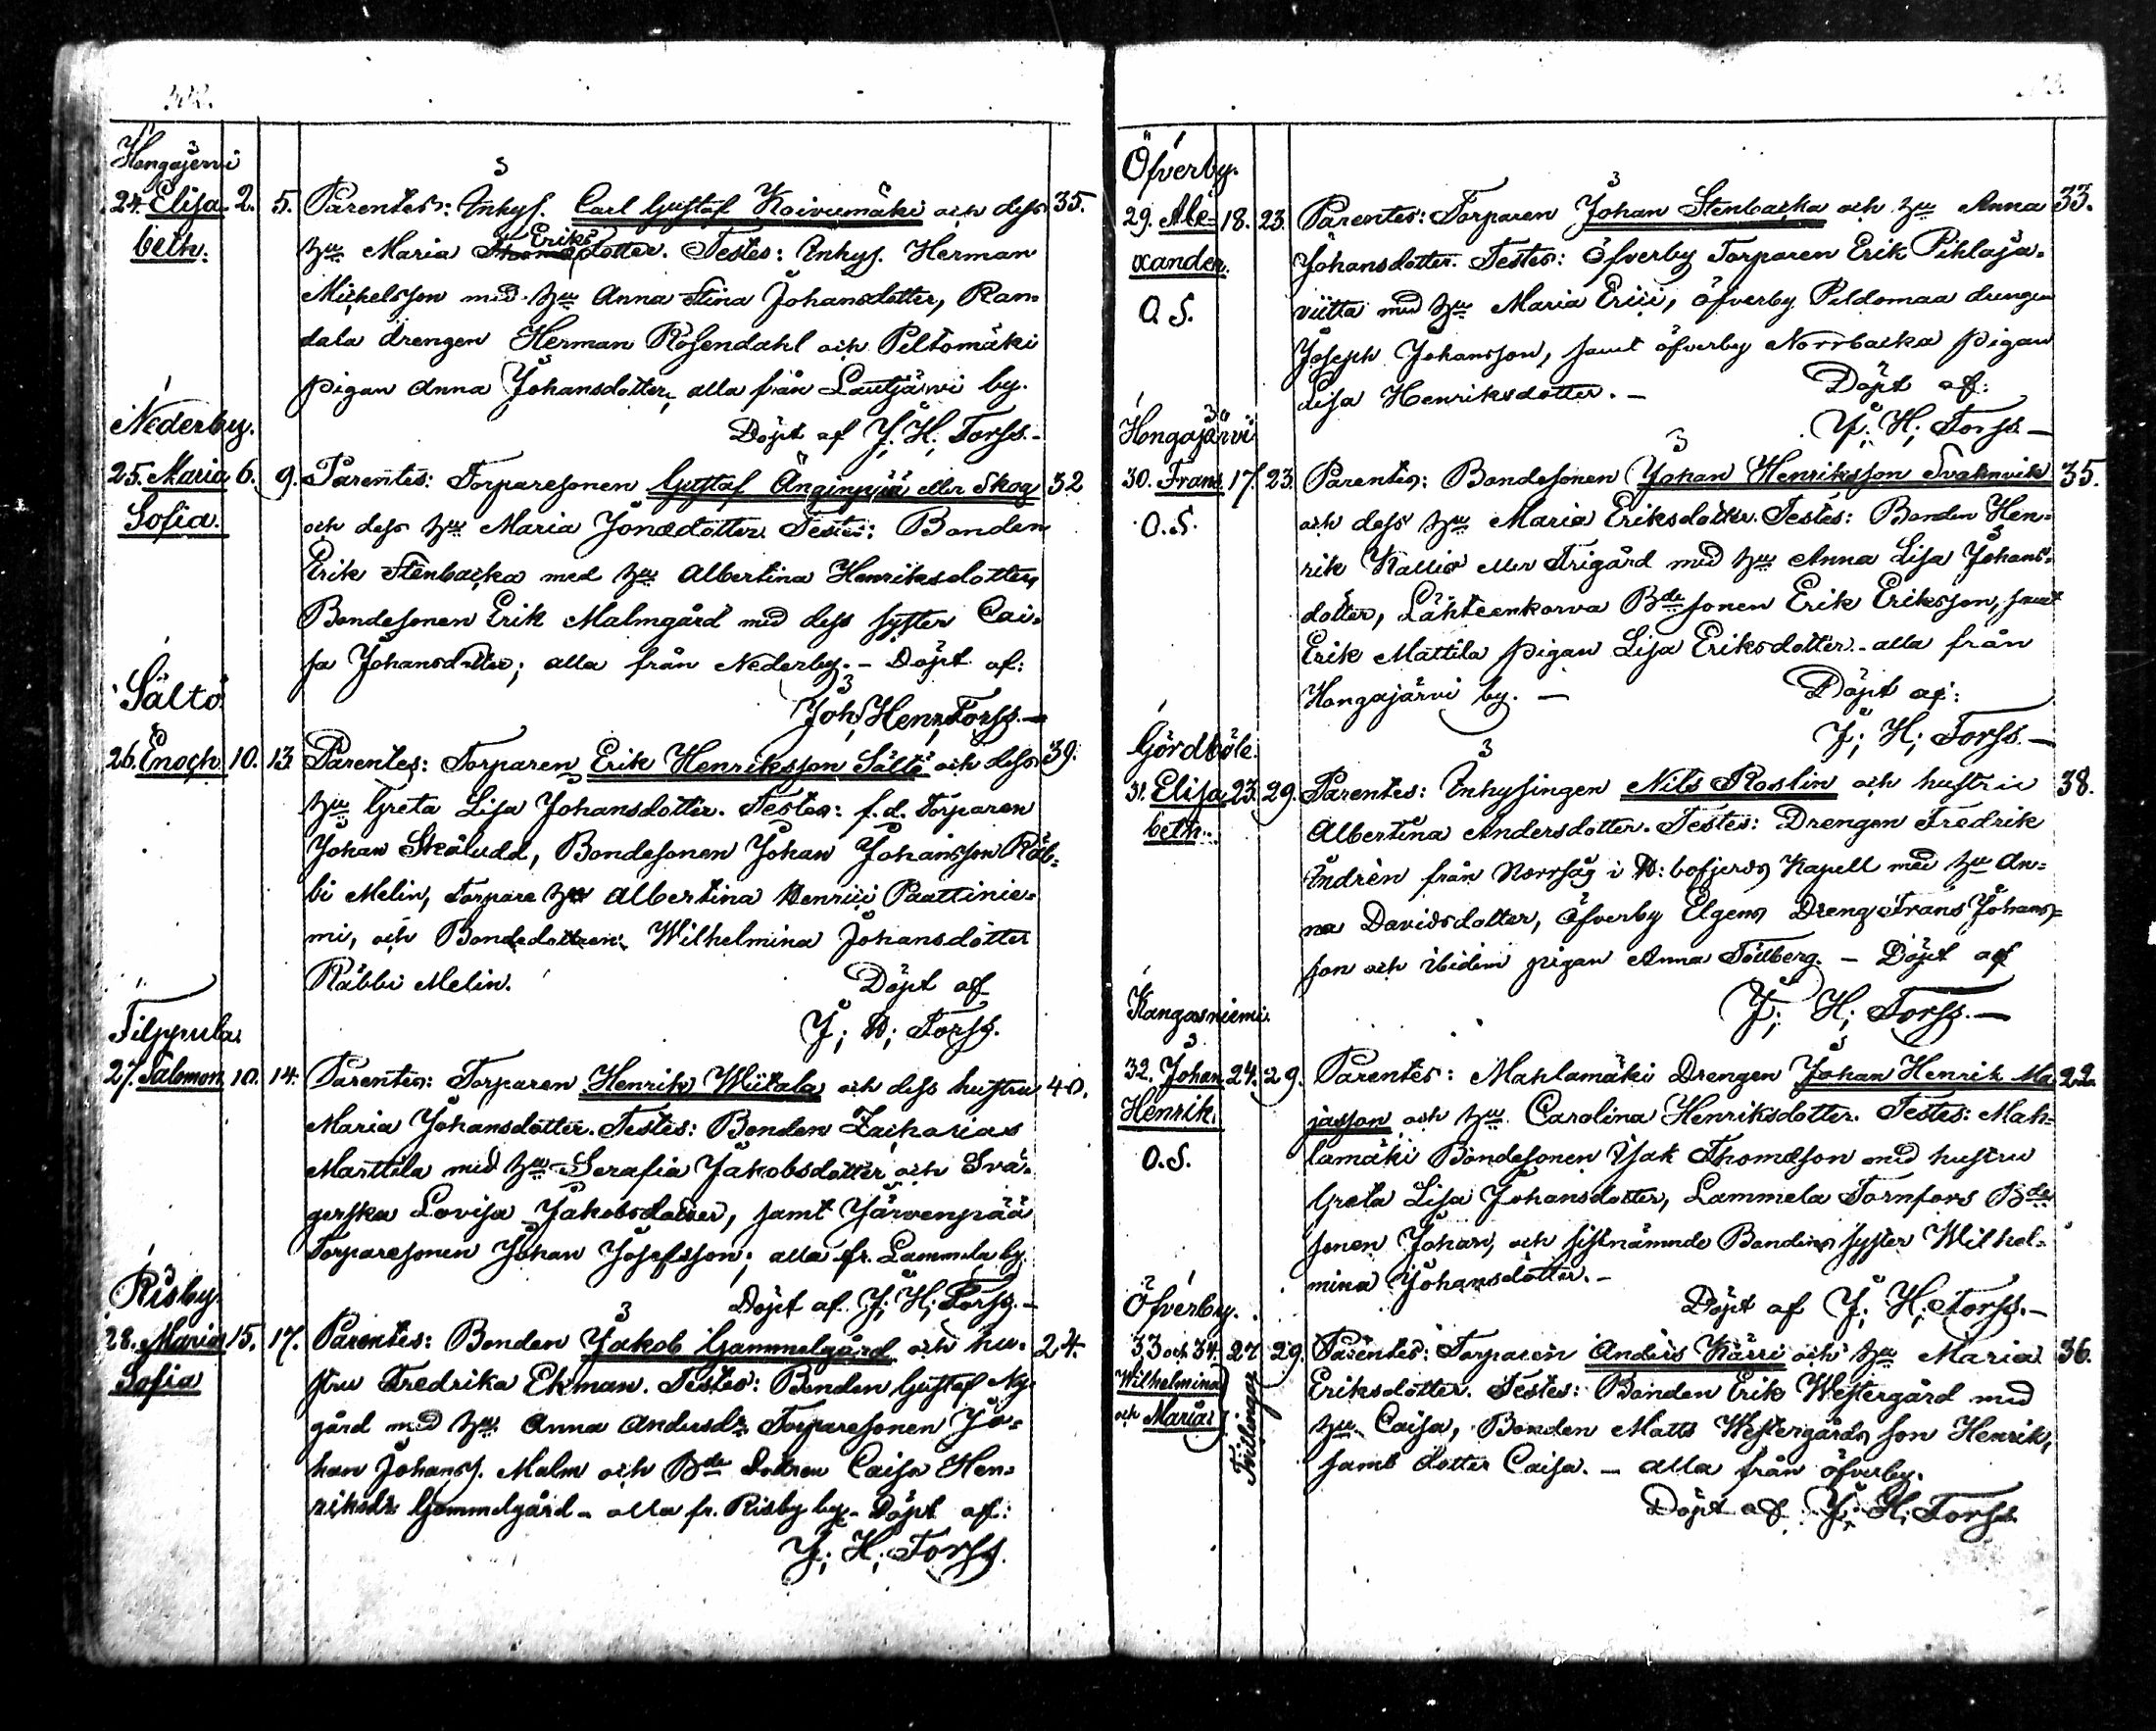 Hongajerwi
24. Elisa- 2. 5. Parentes: Inhys. Carl Gustaf Koivumäki och dess 35.
beth. hu Maria Eriksdotter. Testes: Inhys. Herman
Michelsson med hu Anna Stina Johansdotter, Ran-
dala drengen Herman Rosendahl och Peltomäki
pigan Anna Johansdotter, alla från Lautjärwi by.
Döpt af J. H. Forss.-
Nederby.
25. Maria 6. 9. Parentes: Torparesonen Gustaf Änginpää eller Skog 32
Sofia. och dess hu Maria Jonædotter. Testes: Bonden
Erik Stenbacka med hu Albertina Henriksdotter,
Bondesonen Erik Malmgård med dess syster Cai-
sa Johansdotter; alla från Nederby.- Döpt af:
Joh; Henr; Forss.-
Sältö
26. Enoch 10. 13. Parentes: Torparen Erik Henriksson Sältö och dess 39.
hu Greta Lisa Johansdotter. Testes: f.d. Torparen
Johan Skäludd, Bondesonen Johan Johansson Räb-
bi Melin, Torpare hu Albertina Henrici Paattinie-
mi, och Bondedottren Wilhelmina Johansdotter
Räbbi Melin. Döpt af
J; H; Forss.
Filppula
27. Salomon 10. 14. Parentes: Torparen Henrik Wiitala och dess hustru 40.
Maria Johansdotter. Testes: Bonden Zacharias
Marttila med hu Serafia Jakobsdotter och Svä-
gerska Lovisa Jakobsdotter, samt Järvenpää
Torparesonen Johan Josefsson; alla fr. Lammela by.
Döpt af J; H; Forss.-
Risby
28. Maria 15. 17. Parentes: Bonden Jakob Gammelgård och hu- 24.
Sofia stru Fredrika Ekman. Testes: Bonden Gustaf Ny-
gård med hu Anna Andersdr Torparesonen Jo-
han Johanss. Malm och Bde dottren Caisa Hen-
riksdr Gammelgård - alla fr. Risby by.- Döpt af:
J; H; Forss.
Öfverby.
29. Ale- 18. 23. Parentes: Torparen Johan Stenbacka och hu Anna 33.
xander. Johansdotter. Testes: Öfverby Torparen Erik Pihlaja-
O. S. viitta med hu Maria Erici, Öfverby Peldomaa drengen
Joseph Johansson, samt öfverby Norrbacka pigan
Lisa Henriksdotter.- Döpt af:
J; H; Forss.-
Hongajärvi
30. Frans 17. 23. Parentes: Bondesonen Johan Henriksson Svahnvik 35.
O. S. och dess hu Maria Eriksdotter. Testes: Bonden Hen-
rik Kallio eller Frigård med hu Anna Lisa Johans-
dotter, Lähteenkorva Bde sonen Erik Eriksson, samt
Erik Mattila pigan Lisa Eriksdotter.- alla från
Hongajärvi by.- Döpt af:
J; H; Forss.-
Gördböle.
31. Elisa- 23. 29. Parentes: Inhysingen Nils Roslin och hustru 38.
beth. Albertina Andersdotter. Testes: Drengen Fredrik
Indrèn från Norrsåg i N: bofjerds Kapell med hu An-
na Davidsdotter, Öfverby Elgens Dreng Frans Johans-
son och ibidem pigan Anna Söderberg.- Döpt af
J; H; Forss.-
Kangasniemi.
32. Johan 24. 29. Parentes: Mahlamäki Drengen Johan Henrik Ma- 22.
Henrik. jasson och hu Carolina Henriksdotter. Testes: Mah-
O. S. lamäki Bondesonen Isak Thomasson med hustru
Greta Lisa Johansdotter, Lammela Tornfors Bde
sonen Johan, och sistnämnde Bondens syster Wilhel-
mina Johansdotter.-
Döpt af J; H; Forss.-
Öfverby.
33 och 34. 27 29. Parentes: Torparen Anders Kärri och hu Maria 36.
Wilhelmina Eriksdotter. Testes: Bonden Erik Westergård med
och Maria Tvillingar hu Caisa, Bonden Matts Westergårds son Henrik,
samt dotter Caisa.- alla från öfverby.
Döpt af: J; H; Forss.